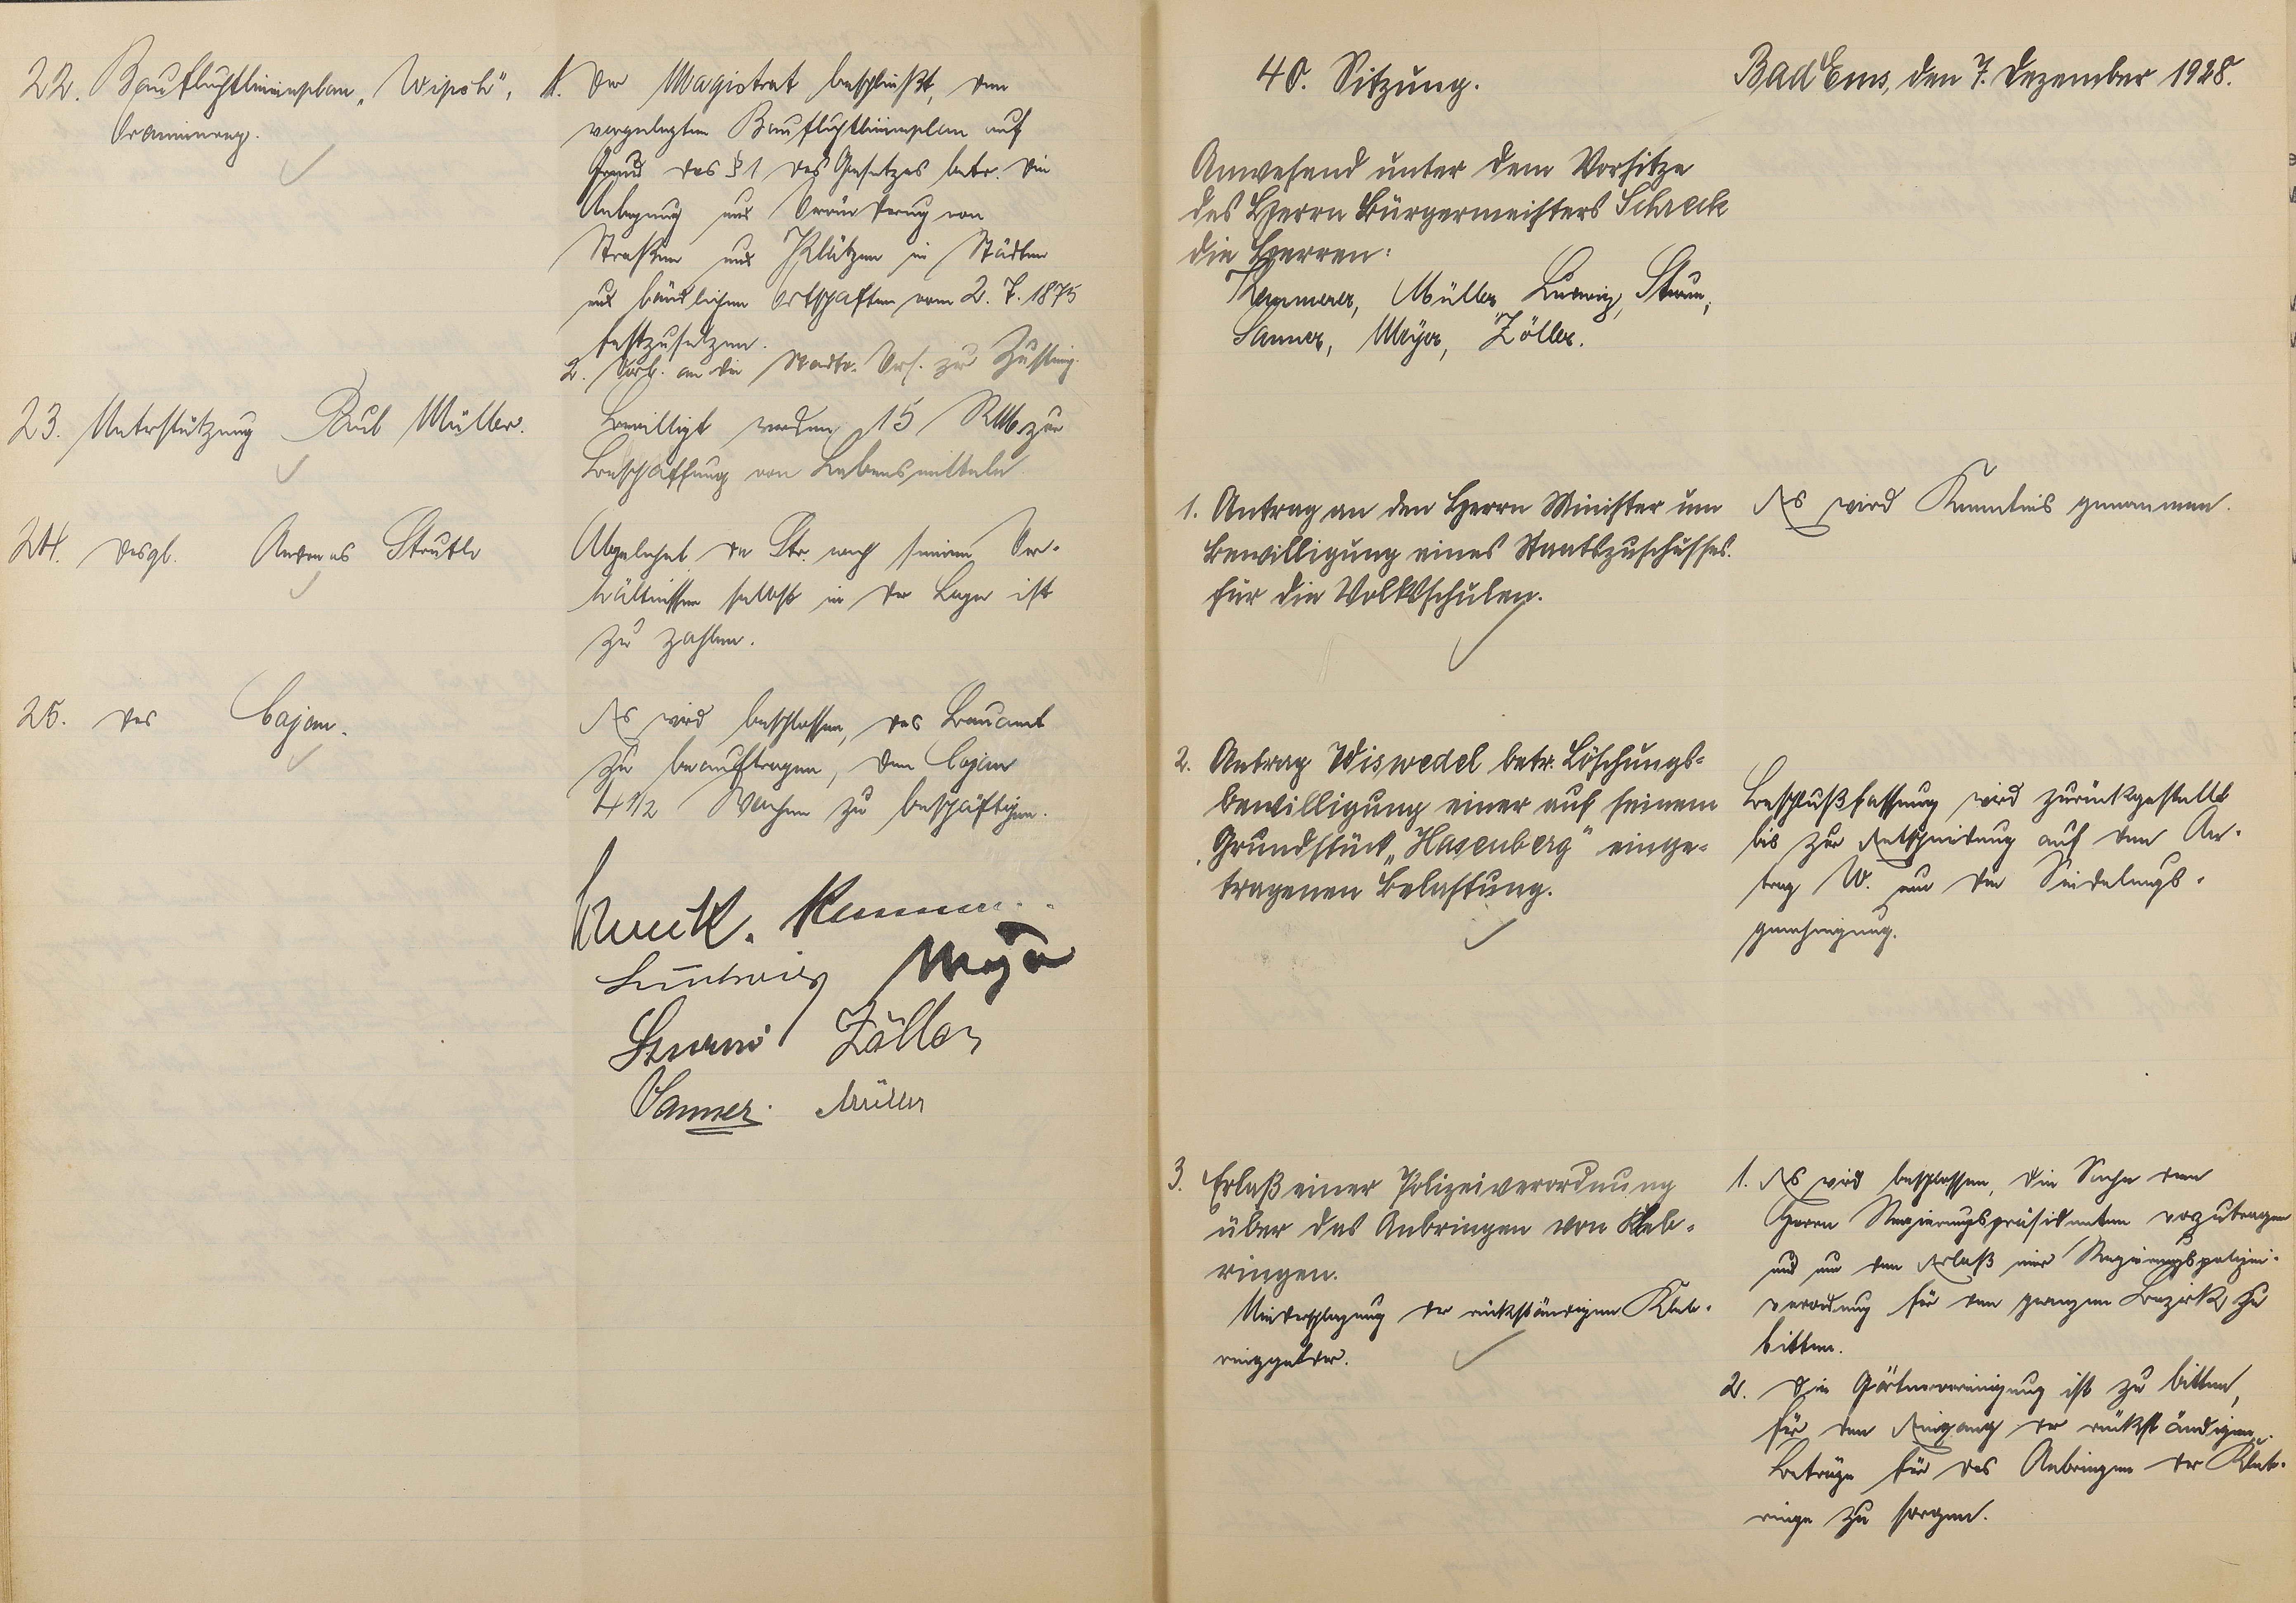 22. Baufluchtlinienplan „Wipsch",
Oranienweg.
1. Der Magistrat beschließt, den
vorgelegten Baufluchtlinienplan auf
Grund des § 1 des Gesetzes betr. die
Anlegung und Veränderung von
Straßen und Plätzen in Städten
und ländlichen Ortschaften vom 2. 7. 1875
festzusetzen.
2. Vorl. an die Stadtv. Vers. zur Zustimg.
23. Unterstützung Paul Müller.
Bewilligt werden 15 RM. zur
Beschaffung von Lebensmitteln.
24. desgl. Andreas Strutb
Abgelehnt, da Str. nach seinen Ver-
hältnissen selbst in der Lage ist
zu zahlen.
25. des Cajan.
Es wird beschlossen, das Bauamt
zu beauftragen, den Cajan
4 1/2 Wochen zu beschäftigen.
Schreck. Kemmerer
Ludwig Meyer
Sturm Zöller
Sanner. Müller
40. Sitzung.
Bad Ems, den 7. Dezember 1928.
Anwesend unter dem Vorsitze
des Herrn Bürgermeisters Schreck
die Herren:
Kemmerer, Müller, Ludwig, Sturm,
Sanner, Meyer, Zöller.
1. Antrag an den Herrn Minister um
Bewilligung eines Staatszuschusses
für die Volksschulen.
Es wird Kenntnis genommen.
2. Antrag Wiswedel betr. Löschungs-
bewilligung einer auf seinem
Grundstück „Hasenberg" einge-
tragenen Belastung.
Beschlußfassung wird zurückgestellt
bis zur Entscheidung auf den An-
trag W. um die Siedelungs-
genehmigung.
3. Erlaß einer Polizeiverordnung
über das Anbringen von Kleb-
ringen.
Niederschlagung der rückständigen Kleb-
ringgelder.
1. Es wird beschlossen, die Sache dem
Herrn Regierungspräsidenten vorzutragen
und um den Erlaß einer Regierungspolizei-
verordnung für den ganzen Bezirk zu
bitten.
2. Die Gärtnervereinigung ist zu bitten,
für den Eingang der rückständigen
Beträge für das Anbringen der Kleb-
ringe zu sorgen.